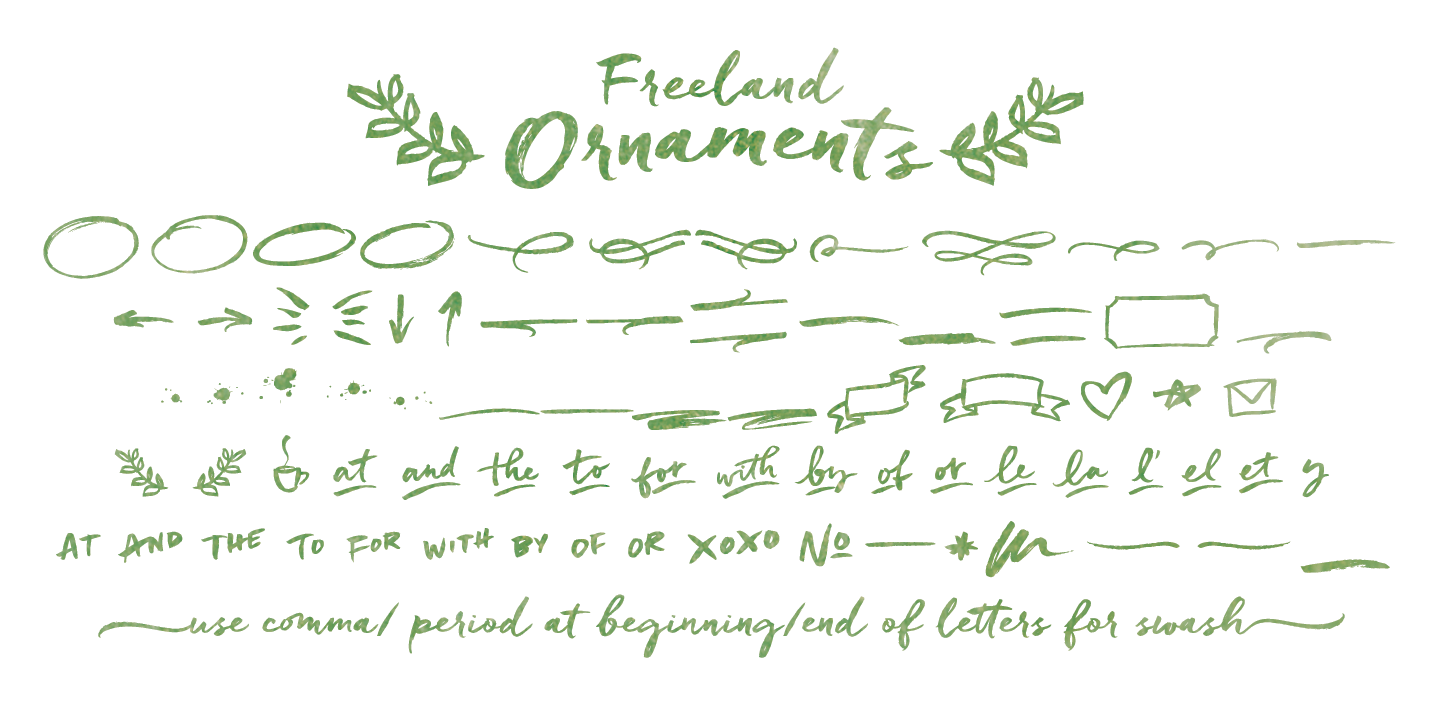 Freeland
Ornaments
at and the to for with by of or le la l' el et y
AT AND THE TO FOR WITH BY OF OR XOXO No
use comma/ period at beginning/end of letters for swash